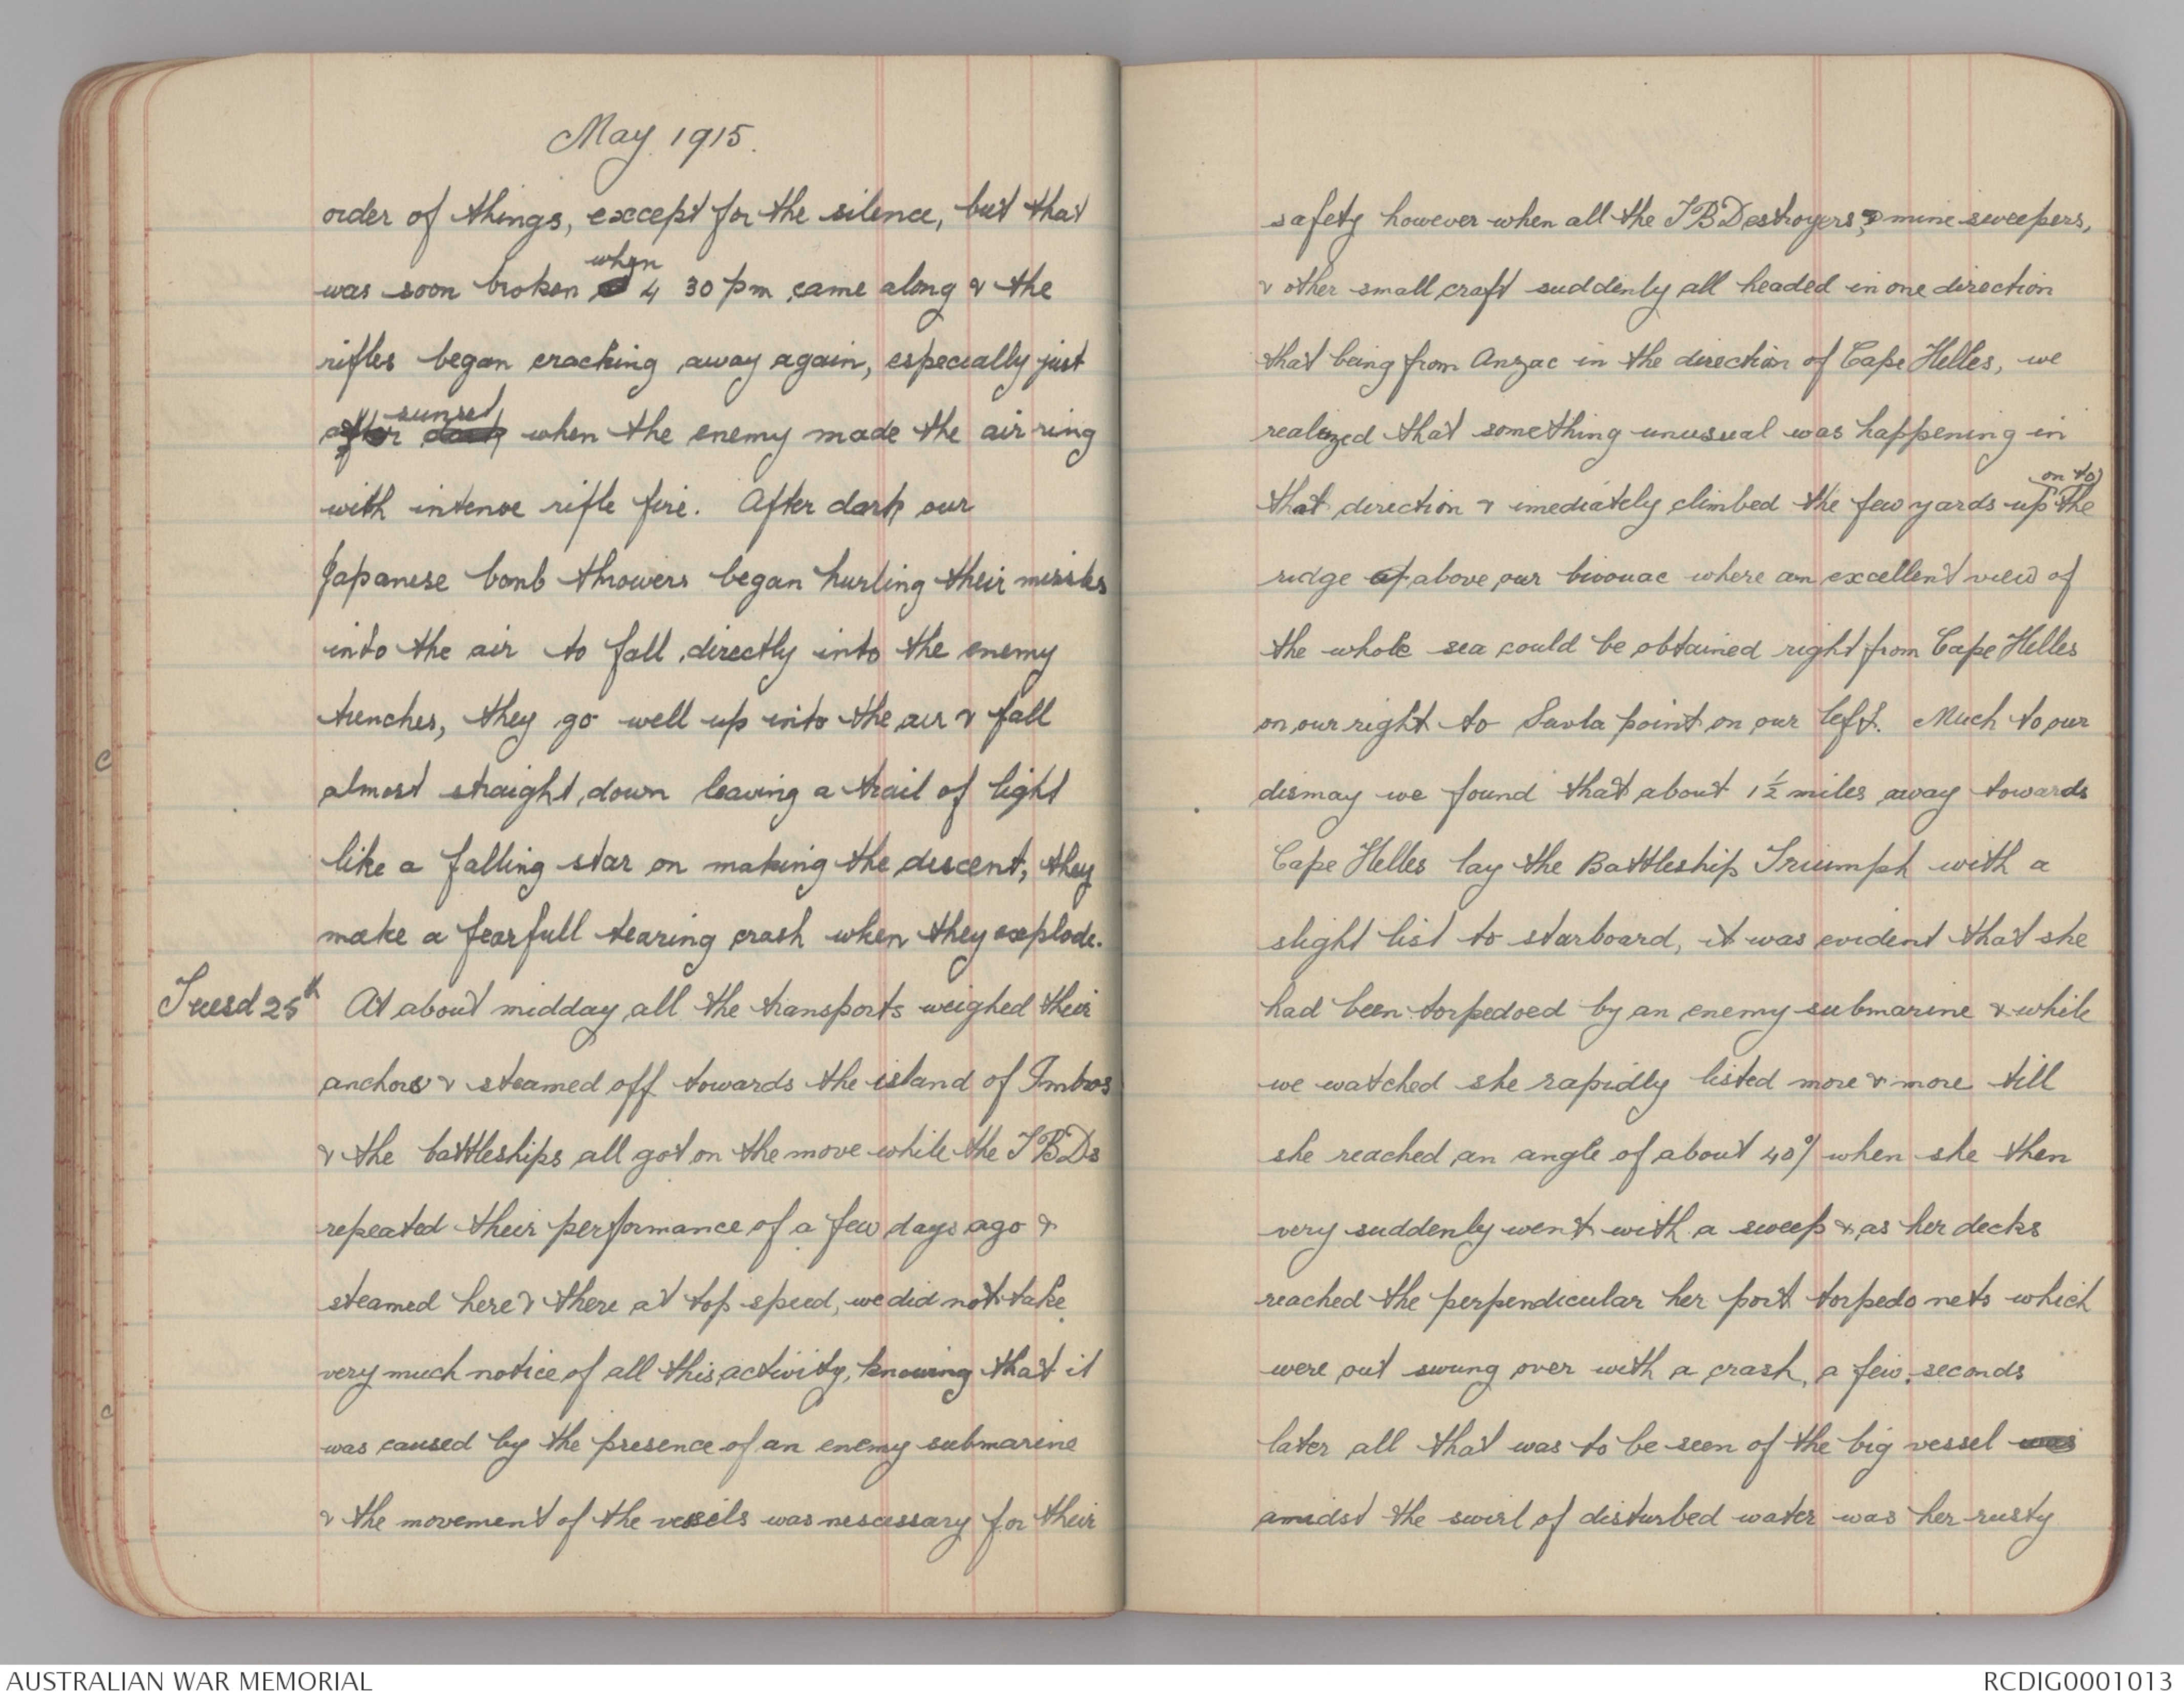 May 1915.
order of things, except for the silence, but that
when
was soon broken 4 30 pm came along & the
rifles began cracking away again, especially just
sunset
after dark when the enemy made the air ring
with intense rifle fire. After dark our
Japanese bomb throwers began hurling their missiles
into the air to fall directly into the enemy
trenches, they go well up into the air & fall
almost straight down leaving a trail of light
like a falling star on making the descent, they
make a fearfull tearing crash when they explode.
Tuesd 25th At about midday all the transports weighed their
anchors & steamed off towards the island of Imbros
& the battleships all got on the move while the TBDs
repeated their performance of a few days ago &
steamed here & there at top speed, we did not take
very much notice of all this activity, knowing that it
was caused by the presence of an enemy submarine
& the movement of the vessels was nescessary for their
safety however when all the TBDestroyers, & mine sweepers,
& other small craft suddenly all headed in one direction
that being from Anzac in the direction of Cape Helles, we
realized that something unusual was happening in
on to
that direction & imediately climbed the few yards up the
ridge of above our bivouac where an excellent view of
the whole sea could be obtained right from Cape Helles
on our right to Suvla point on our left. Much to our
dismay we found that about 1½ miles away towards
Cape Helles lay the Battleship Triumph with a
slight list to starboard, it was evident that she
had been torpedoed by an enemy submarine & while
we watched she rapidly listed more & more till
she reached an angle of about 40% when she then
very suddenly went with a sweep & as her decks
reached the perpendicular her port torpedo nets which
were out swung over with a crash, a few seconds
later all that was to be seen of the big vessel was
amidst the swirl of disturbed water was her rusty
AUSTRALIAN WAR MEMORIAL
RCDIG0001013